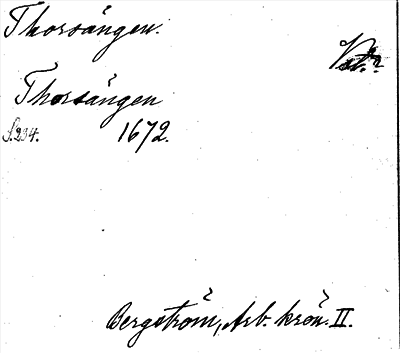 Thorsången.
Thorsången
S. 234. 1672.
Bergström, Arb. krön. II.